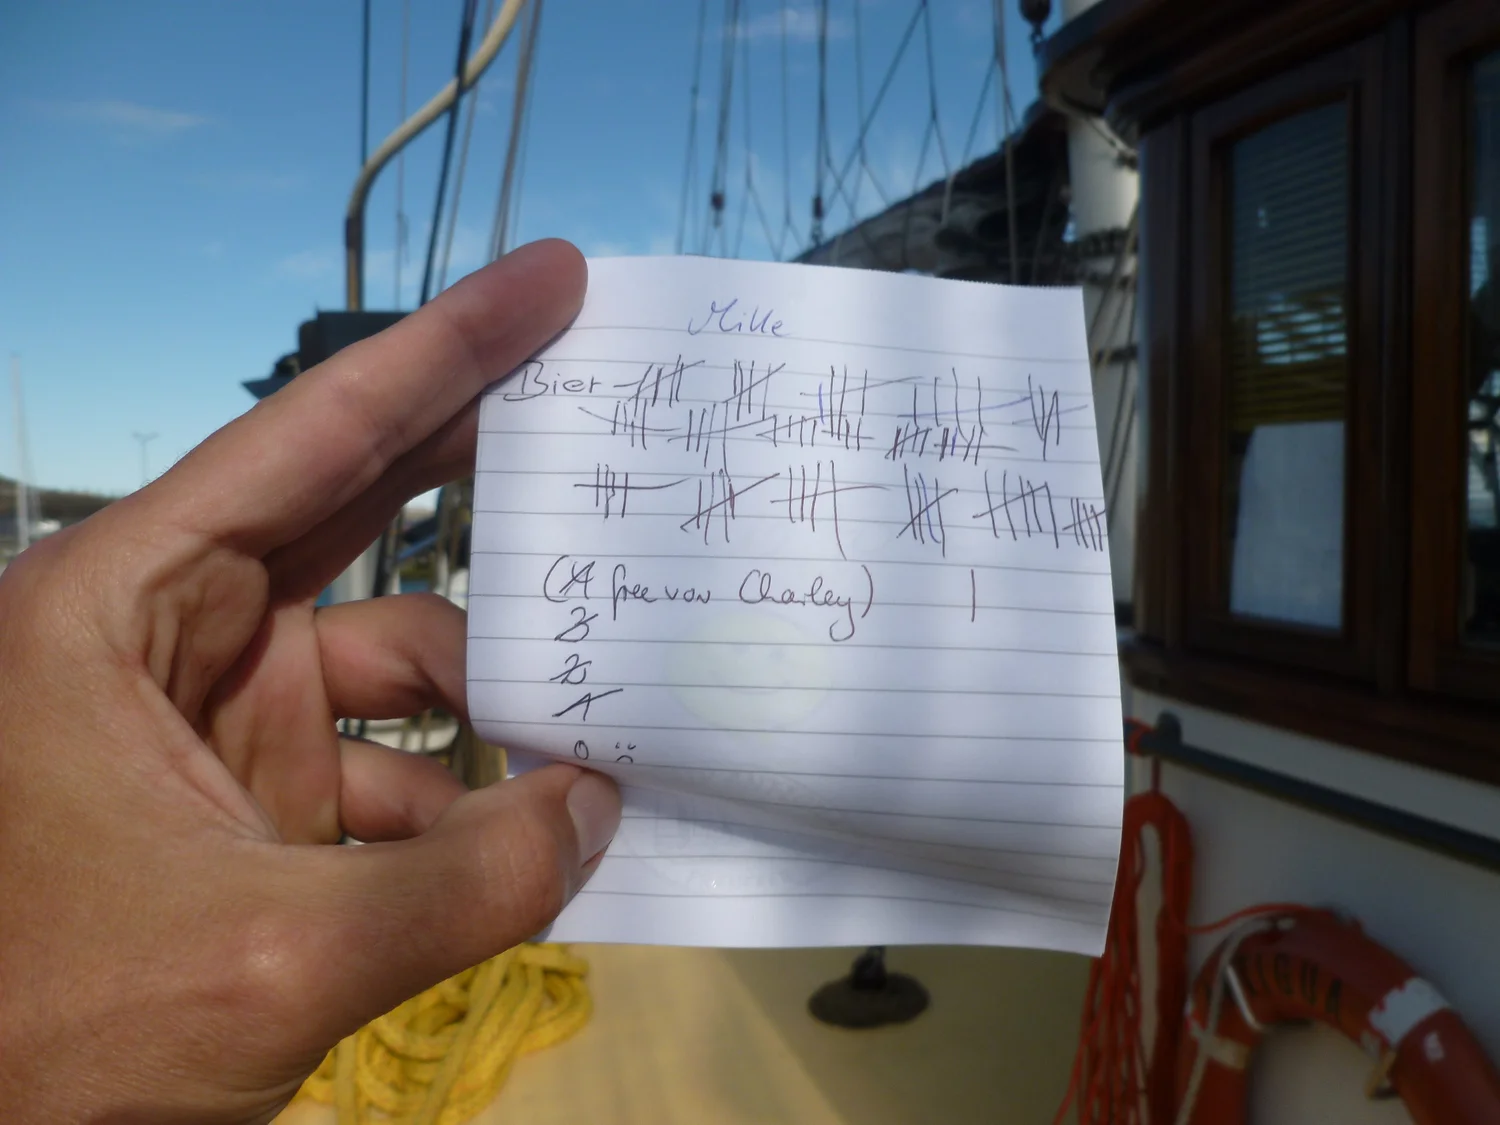 Mille
Bier
(4 free von Charley)
3
2
1
0 :(
TIGUA